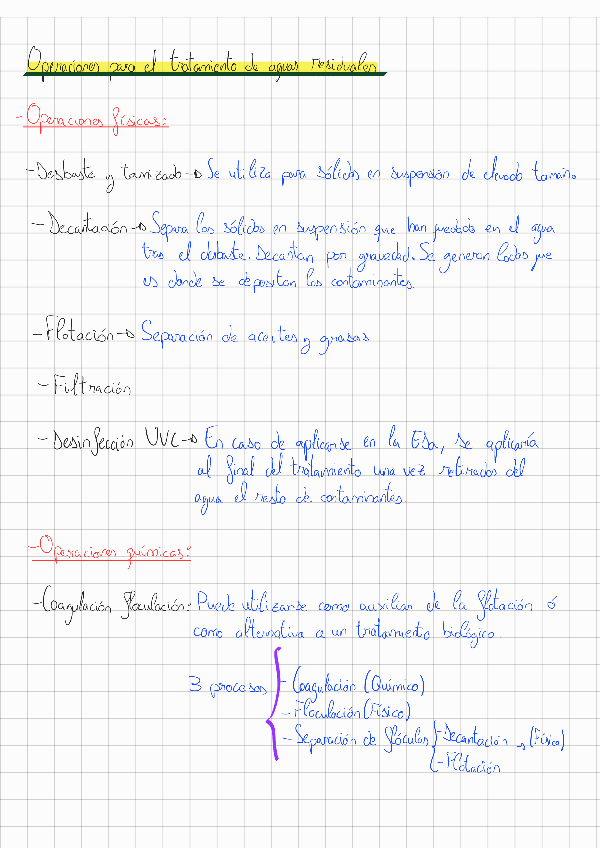 Operaciones para el tratamiento de aguas residuales
- Operaciones físicas:
- Desbaste y tamizado → Se utiliza para sólidos en suspensión de elevado tamaño
- Decantación → Separa los sólidos en suspensión que han quedado en el agua
tras el desbaste. Decantan por gravedad. Se generan lodos que
es donde se depositan los contaminantes.
- Flotación → Separación de aceites y grasas
- Filtración
- Desinfección UVC → En caso de aplicarse en la EDa, se aplicaría
al final del tratamiento una vez retirados del
agua el resto de contaminantes
- Operaciones químicas:
- Coagulación floculación: Puede utilizarse como auxiliar de la flotación ó
como alternativa a un tratamiento biológico
3 procesos { - Coagulación (Químico)
- Floculación (Físico)
- Separación de flóculos { - Decantación → (Físico)
- Flotación